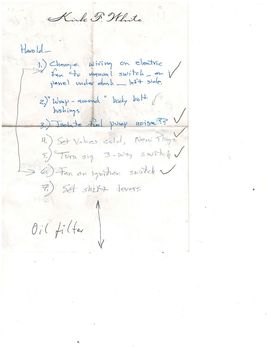 Kirk F. White
Harold -
1.) Change wiring on electric
fan to manual switch - on
panel under dash - left side.
2.) "Wrap-around" body bolt
bushings
3.) Isolate fuel pump noise??
4.) Set Valves cold, New Plugs
5.) Turn sig 3-way switch
6.) Fan on ignition switch
7.) Set shift levers
Oil filter